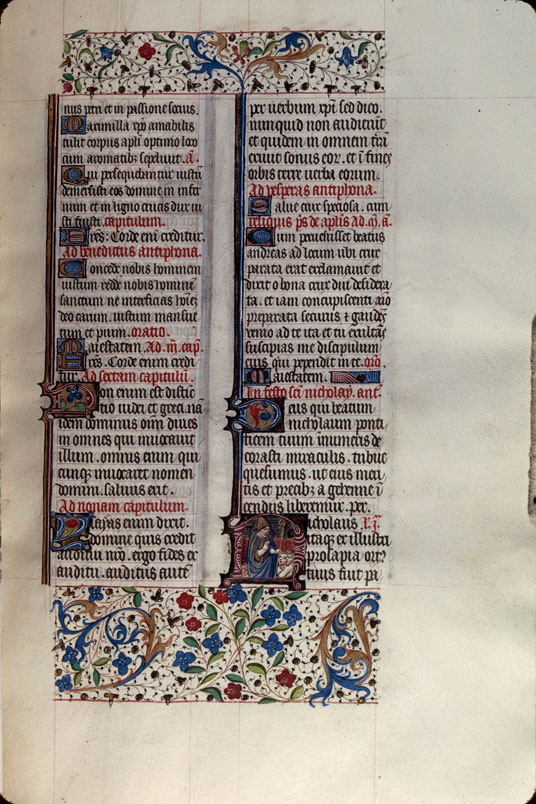 nus petri et in passione socius.
Maximilla xpo amabilis
tulit corpus apli optimo loco
cum aromatibz sepeliuit. A.
Qui persequebantur iustum
demersisti eos domine in infer
num et in ligno crucis dux iu
sti fuisti. capitulum.
Fres: Corde eni creditur.
Ad benedictus antiphona.
Concede nobis hominem
iustum redde nobis hominē
sanctum ne interficias hoīez
deo carum. iustum mansue
tum et pium. oratio.
Maiestatem Ad .iij. cap.
Fres. Corde enim credi
tur. Ad sectam capitulū.
Non enim est distinc
tio iudei et greci. nā
idem dominus oim diues
in omnes qui inuocant
illum. omnis enim qui
cunqz inuocaret nomen
domini. saluus erit.
Ad nonam capitulum.
Isayas enim dixit.
domine quis credit
auditui nrō. ergo fides ex
auditu. auditus autē
per uerbum xpi sed dico.
nunquid non audierūt
et quidem in omnem trā
exiuit sonus eor. et ī fines
orbis terre uerba eorum.
Ad vesperas antiphona.
Salue crux speciosa. cum
reliquis ps de aplis Ad .m. a.
Cum peruenisset beatus
andreas ad locum ubi crux
parata erat exclamauit et
dixit o bona crux diu desidera
ta. et iam concupiscenti aīo
preparata securus et gaudēs
uenio ad te ita et tu exultās
suscipias me discipulum
eius qui pependit in te. orō.
Maiestatem.
In festo scī nicholay. ant.
Deus qui beatum
nicholaum ponti
ficem tuum innumeris de
corasti miraculis. tribue
quesumus. ut eius meri
tis et precibz a gehenne ī
cendijs liberemur. per.
Nicholaus l. j.
itaqz ex illustri
prosapia ortz
ciuis fuit pa